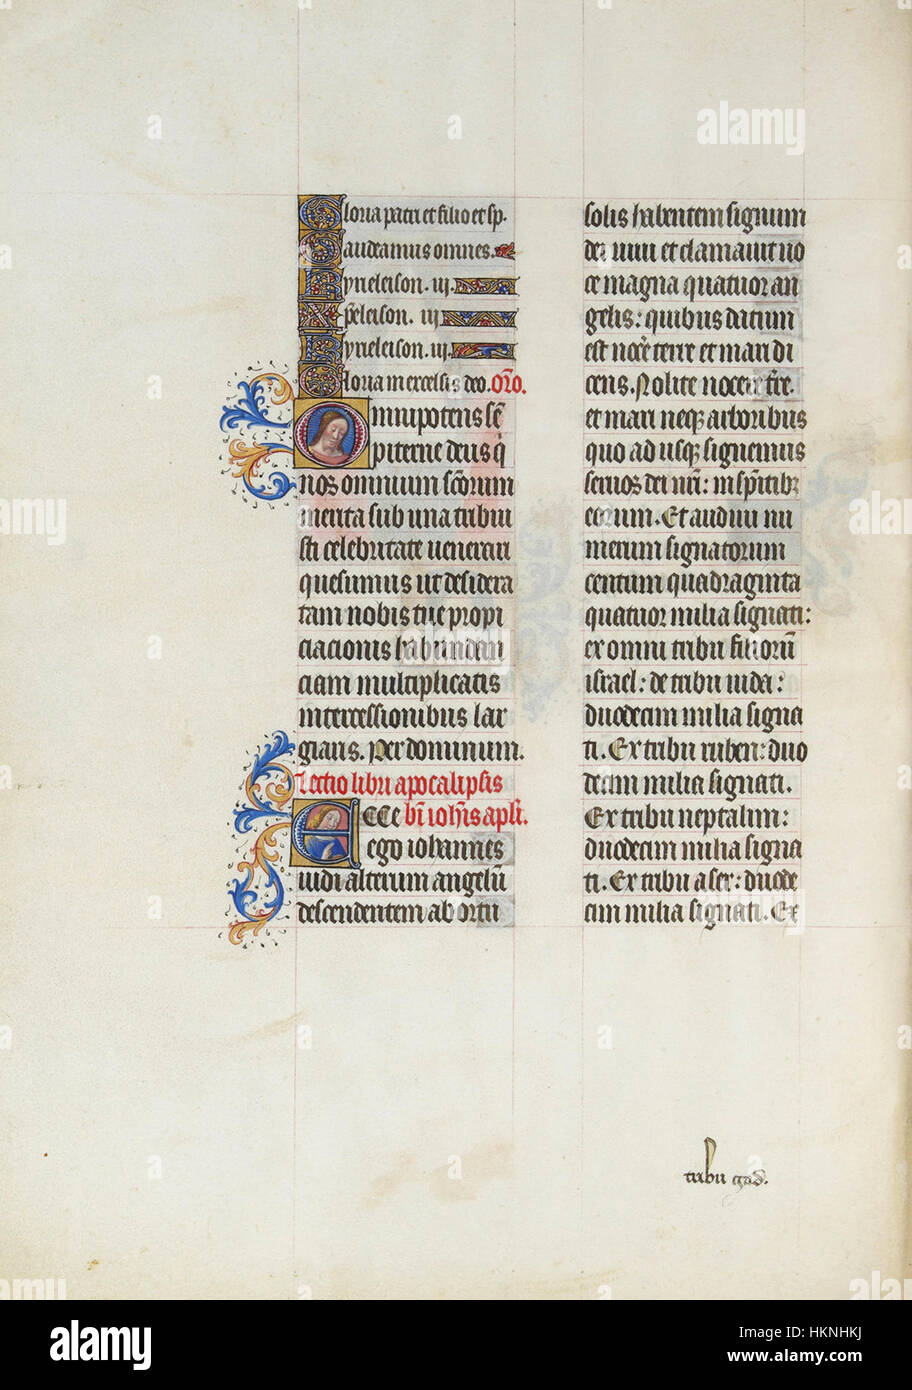 Gloria patri et filio et sp.
Gaudeamus omnes.
Kyrieleison. iij.
Xp̄eleison. iij
Kyrieleison. iij.
Gloria in excelsis deo. Orō.
Omnipotens sē
piterne deus q̄
nos omnium sc̄orum
merita sub una tribui
sti celebritate venerari
quesumus ut desidera
tam nobis tue propi
ciacionis habundan
ciam multiplicatis
intercessionibus lar
giaris. Per dominum.
Lectio libri apocalipsis
Ecce bt̄i ioh̄is apl̄i.
ego iohannes
vidi alterum angelū
descendentem ab ortu
solis habentem signum
dei vivi et clamavit vo
ce magna quatuor an
gelis: quibus datum
est nocē terre et mari di
cens. Nolite nocere t̄re.
et mari neqꝫ arboribus
quo ad usqꝫ signemus
servos dei nr̄i: in frōtibꝫ
eorum. Et audivi nu
merum signatorum
centum quadraginta
quatuor milia signati:
ex omni tribu filiorū
israel: de tribu iuda:
duodecim milia signa
ti. Ex tribu ruben: duo
decim milia signati.
Ex tribu neptalim:
duodecim milia signa
ti. Ex tribu aser: duode
cim milia signati. Ex
tribu gad.
alamy
Image ID: HKNHKJ
www.alamy.com